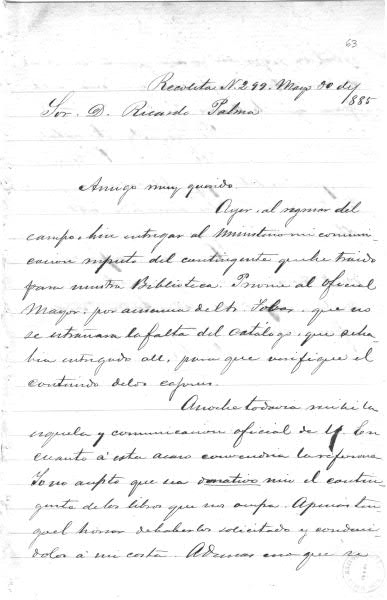 63
Recoleta N. 299. Mayo 30 de
1885
Sor. D. Ricardo Palma
Amigo muy querido.
Ayer, al regresar del
campo, hice entregar al Ministerio mi comuni-
cacion respecto del contingente que he traido
para nuestra Biblioteca. Previne al oficial
Mayor, por ausencia del Sr. Tobar, que no
se extrañara la falta del Catálogo, que se ha-
bia entregado allí, para que verifique el
contenido de los cajones.
Anoche todavia recibi la
esquela y comunicacion oficial de U. En
cuanto á esta acaso convendria la reforma
Yo no acepto que sea donativo mio el contin-
gente de los libros que nos ocupa. Apenas ten-
go el honor de haberlos solicitado y conducí-
dolos á mi costa. Ademas creo que se